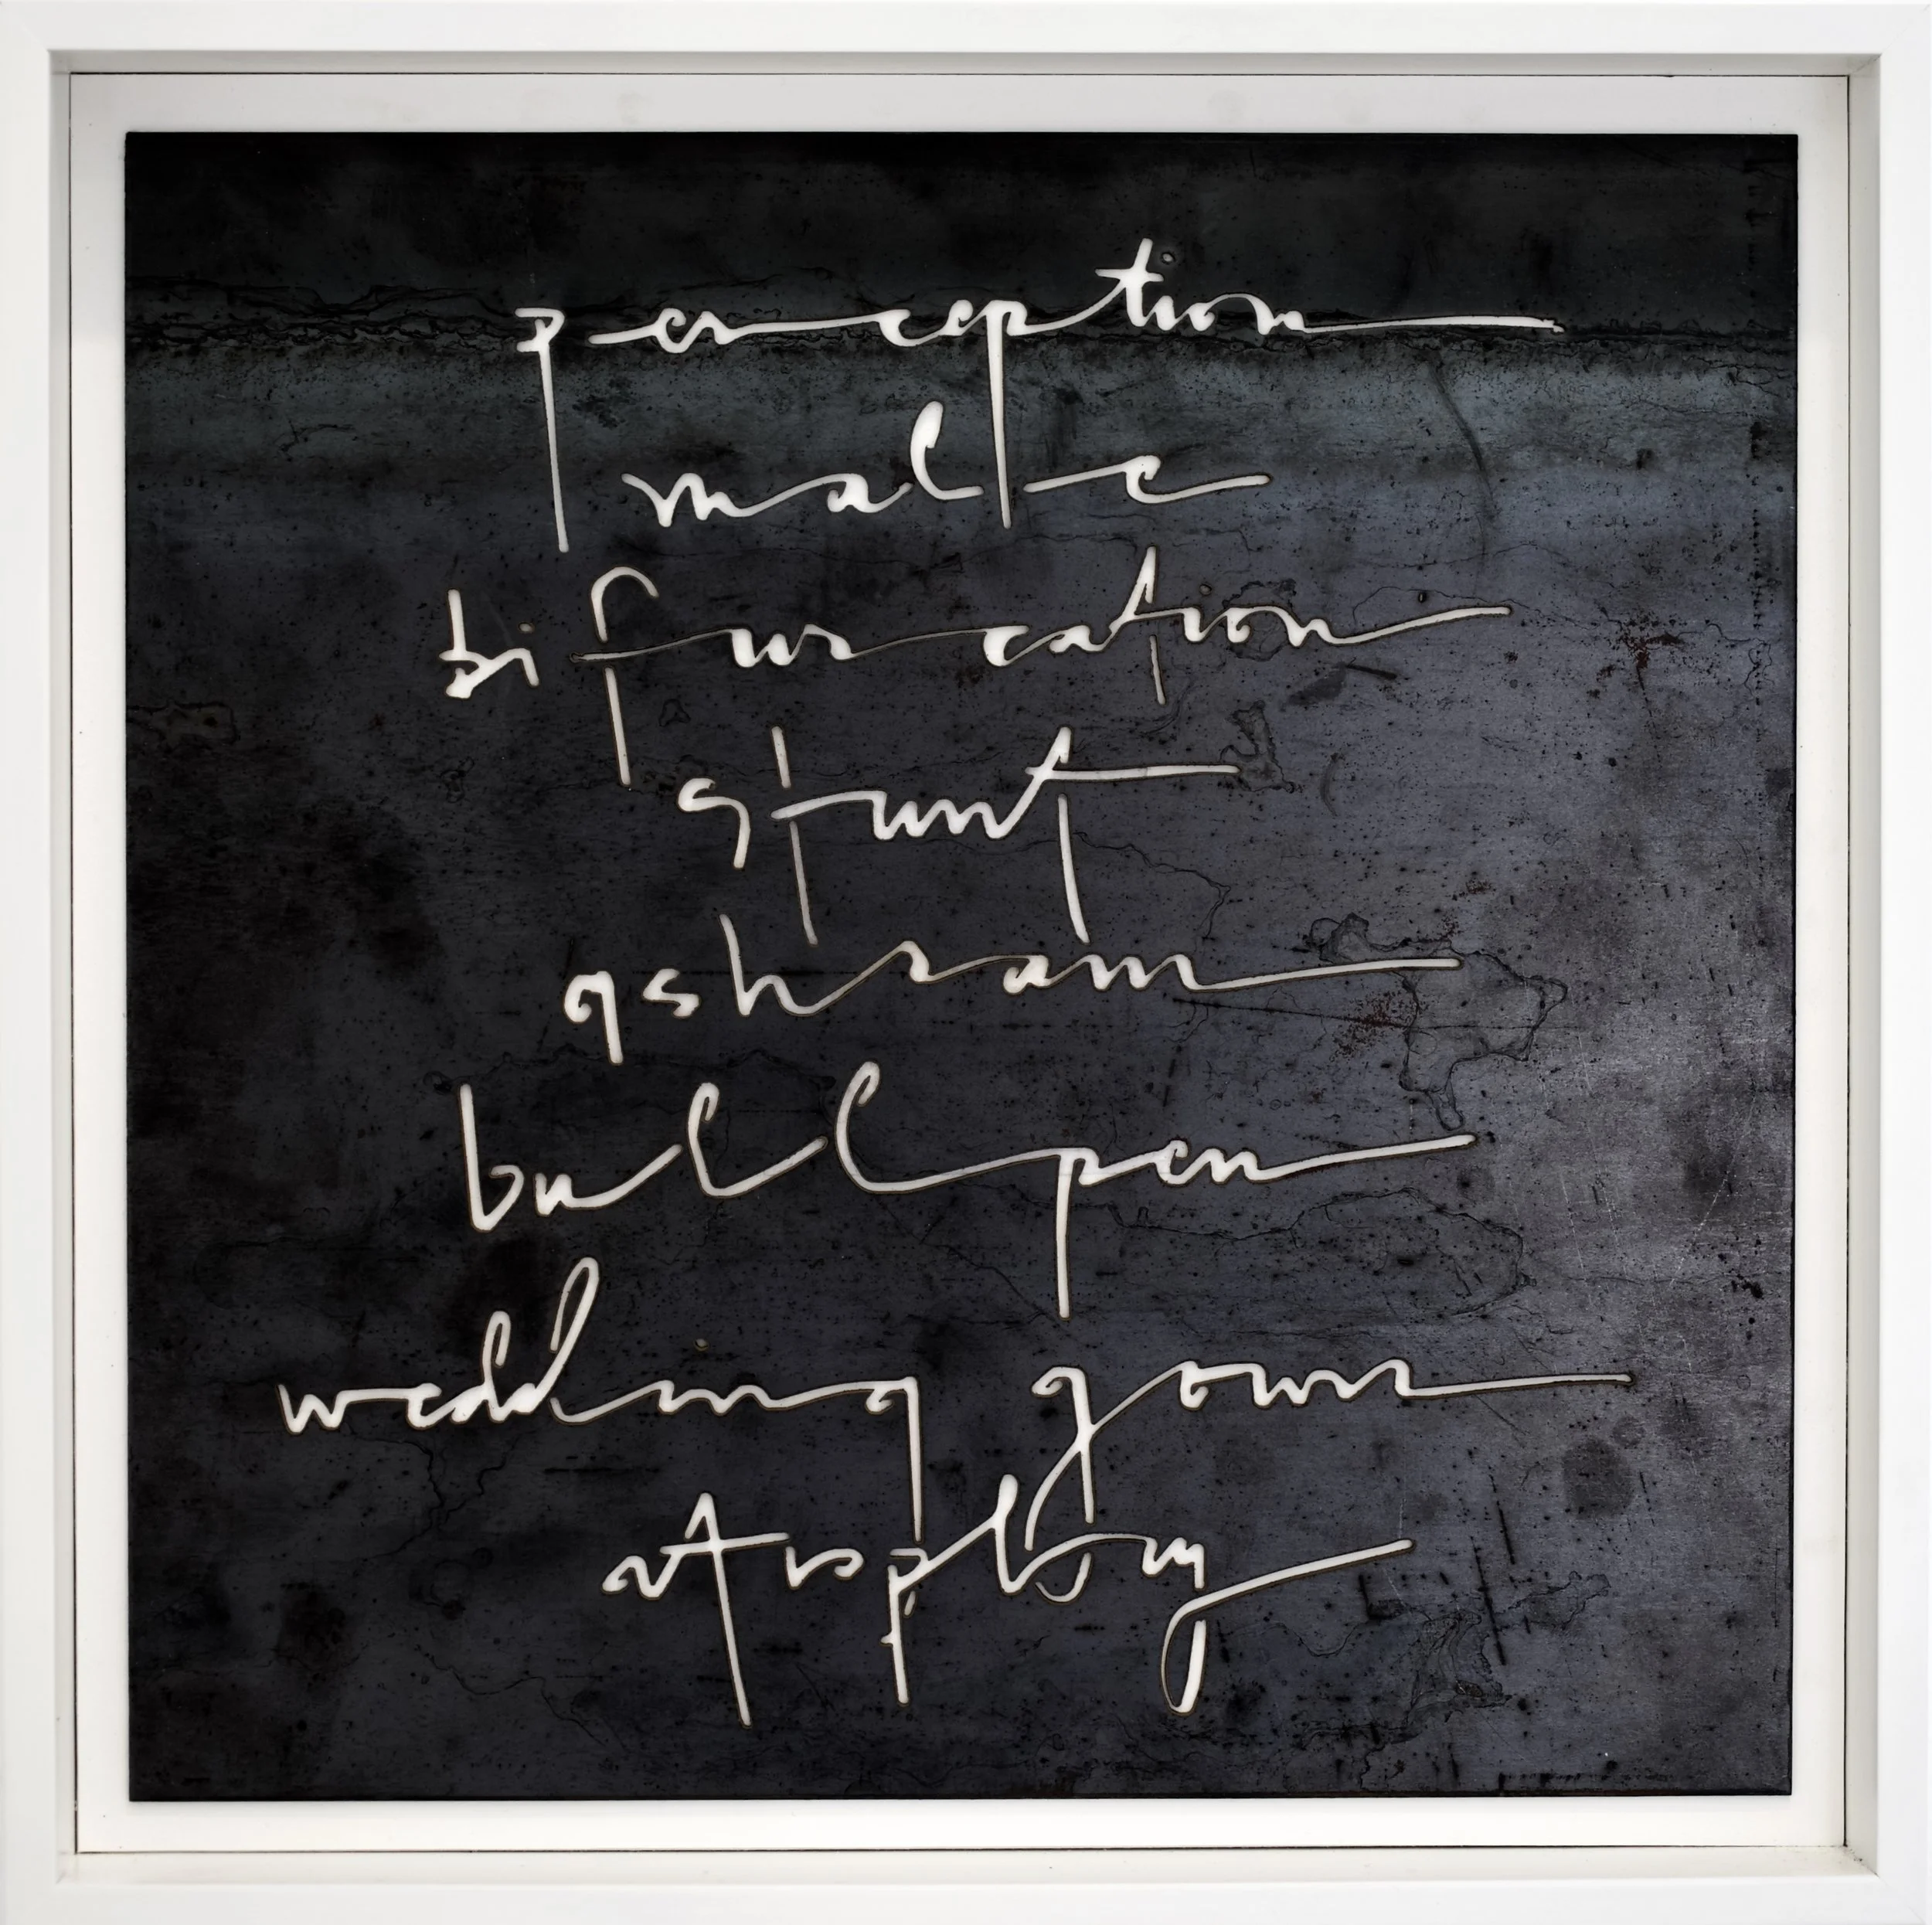 perception
male
bifurcation
stunt
ashram
bullpen
wedding gown
atrophy